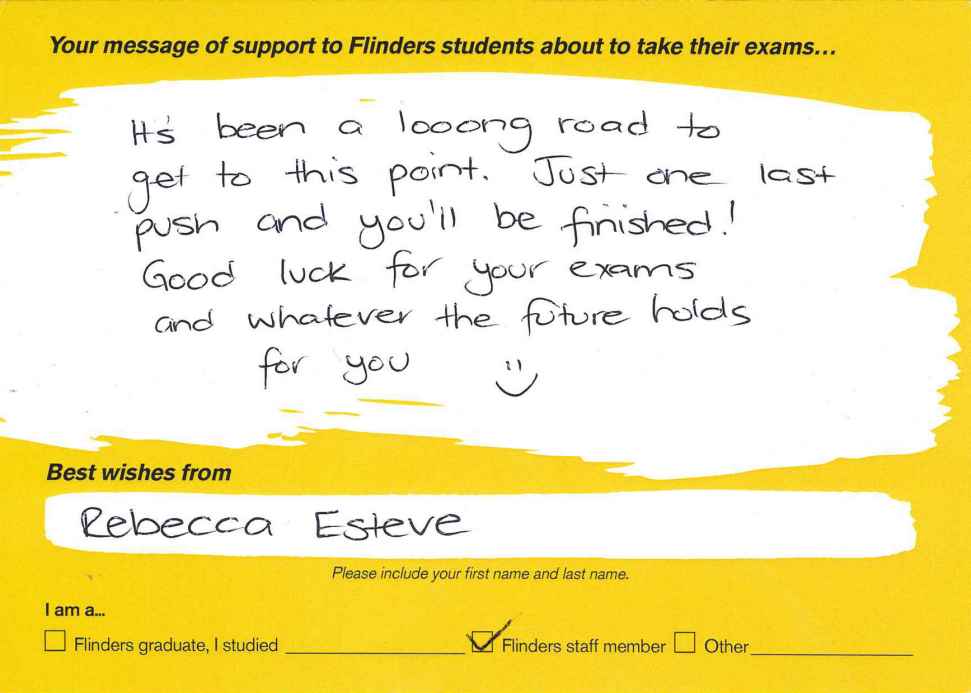 Your message of support to Flinders students about to take their exams...
It's been a looong road to
get to this point. Just one last
push and you'll be finished!
Good luck for your exams
and whatever the future holds
for you :)
Best wishes from
Rebecca Esteve
Please include your first name and last name.
I am a...
☐ Flinders graduate, I studied ☑ Flinders staff member ☐ Other